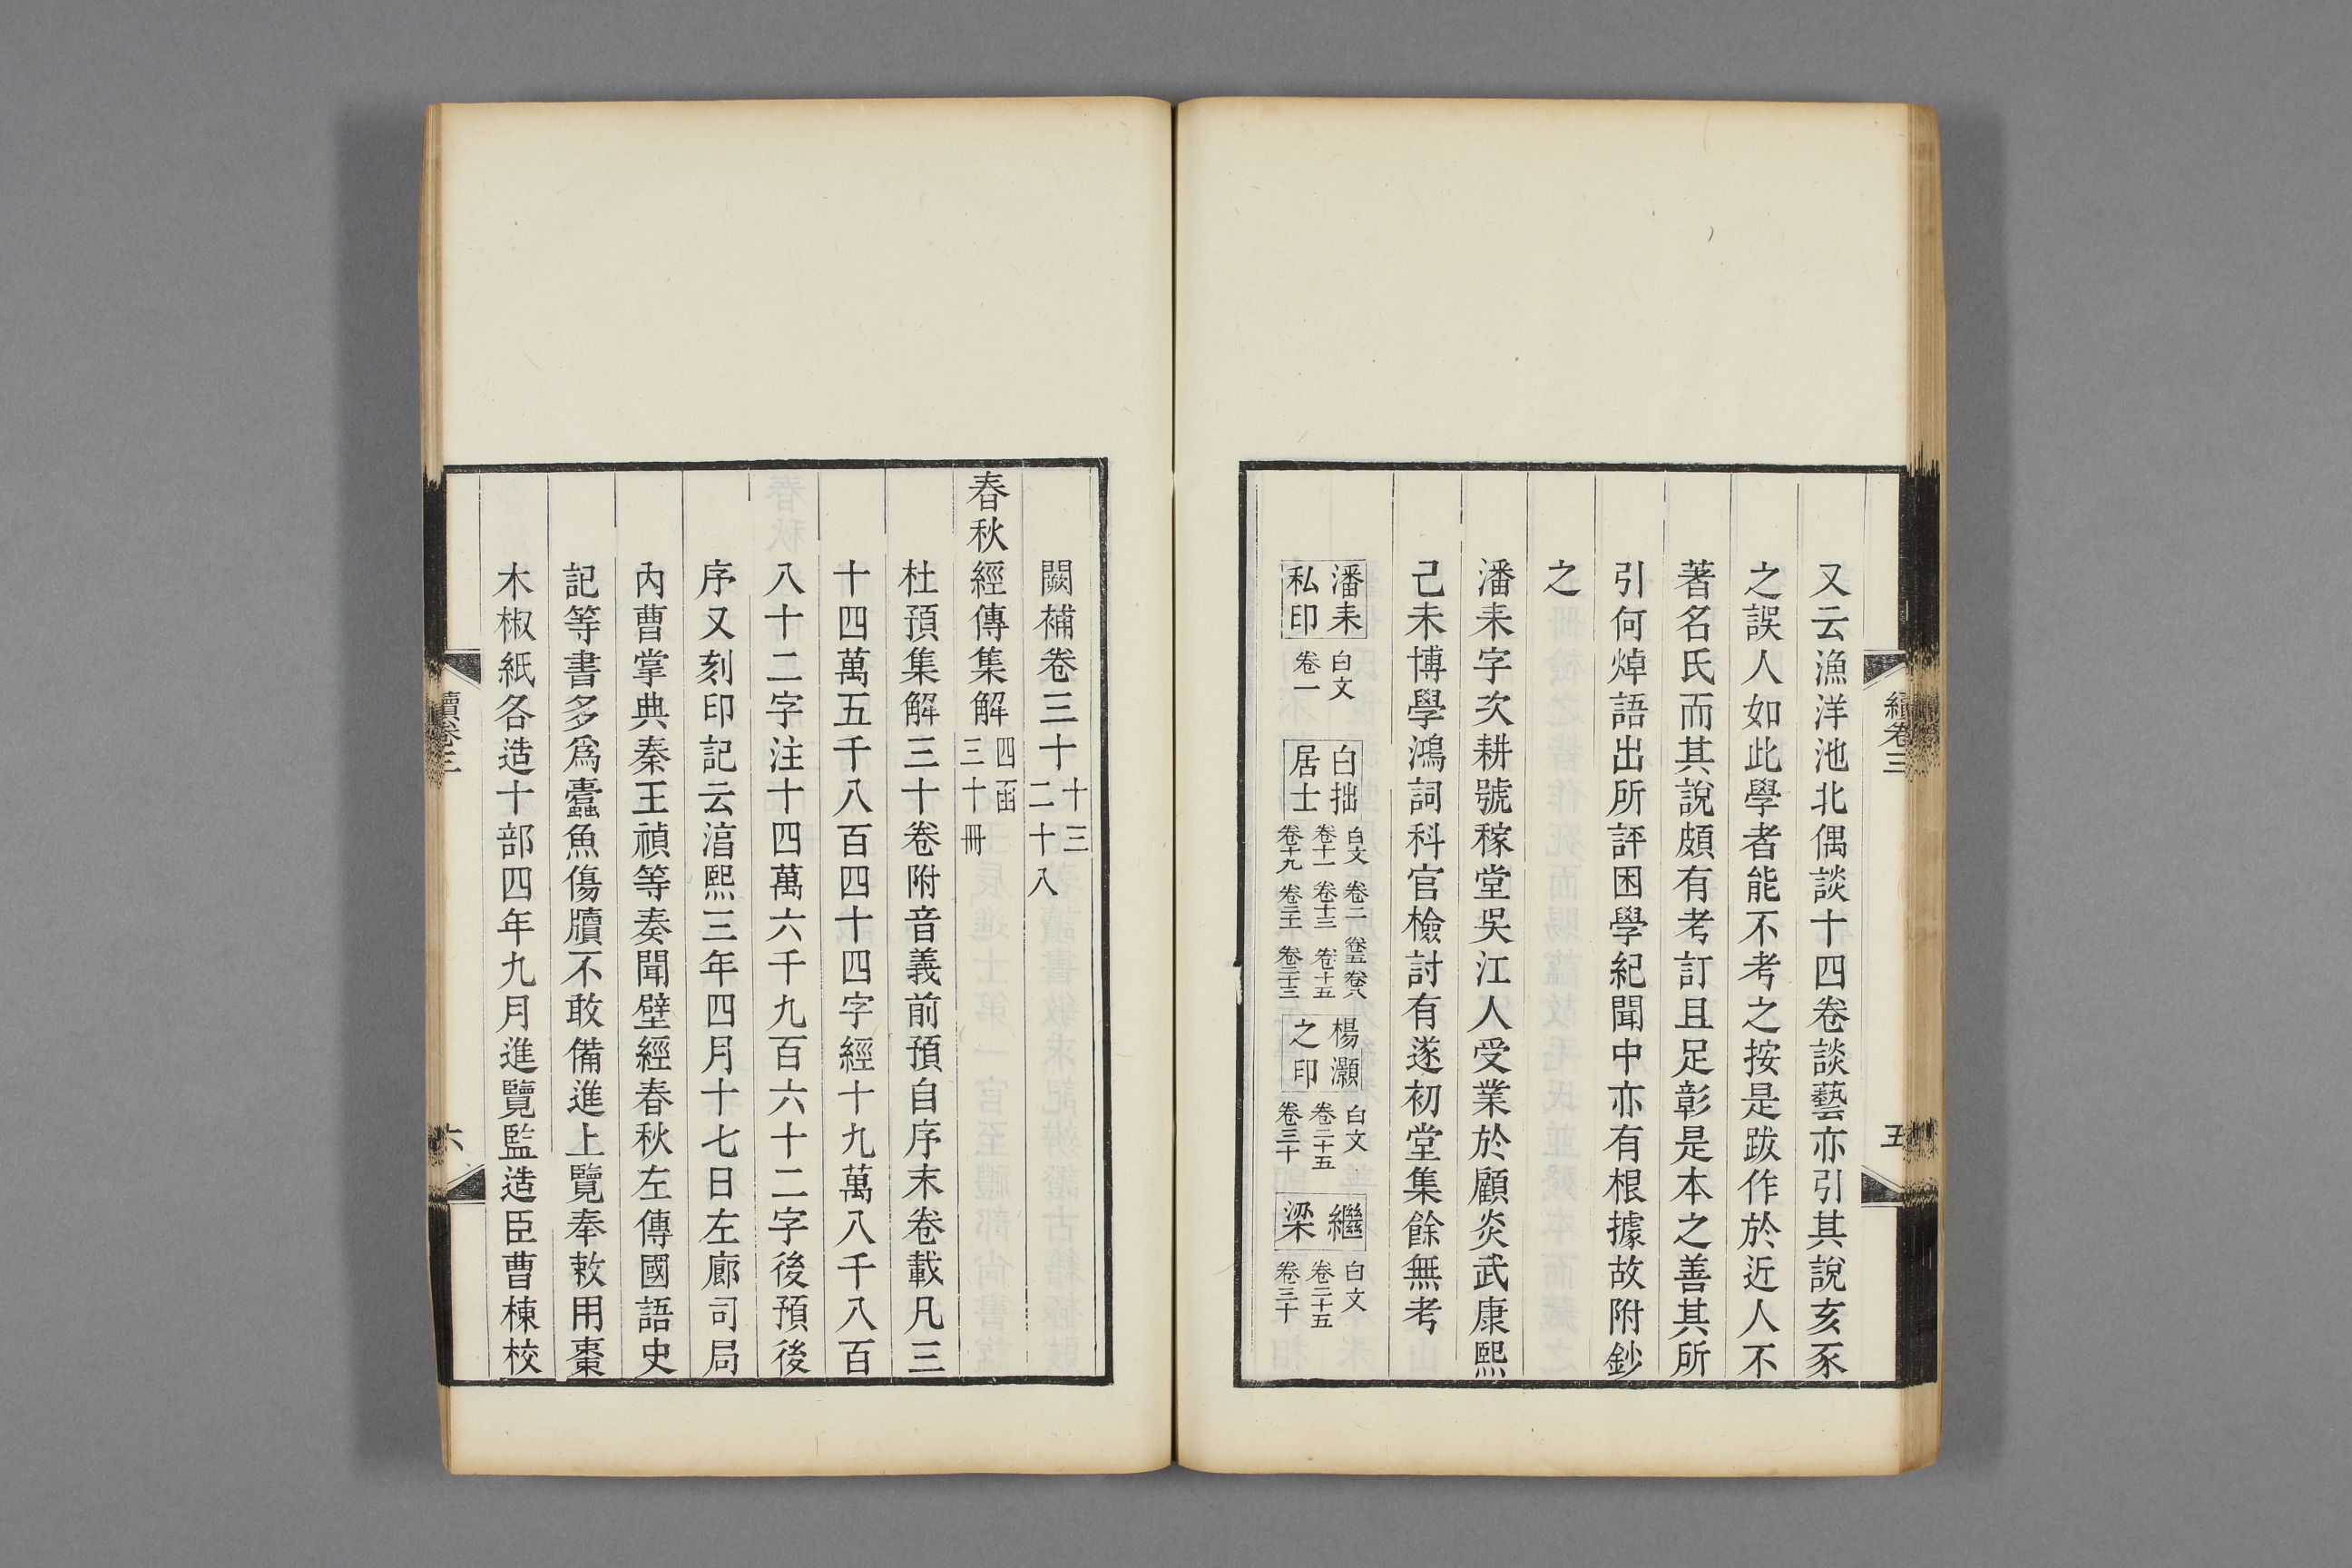 又云漁洋池北偶談十四卷談藝亦引其說亥豕
之誤人如此學者能不考之按是跋作於近人不
著名氏而其說頗有考訂且足彰是本之善其所
引何焯語出所評困學紀聞中亦有根據故附鈔
之
潘耒字次耕號稼堂吳江人受業於顧炎武康熙
己未博學鴻詞科官檢討有遂初堂集餘無考
潘耒
私印
白文
卷一
白拙
居士
白文 卷二 卷五 卷八
卷十一 卷十三 卷十五
卷十九 卷二十 卷二十三
楊灝
之印
白文
卷二十五
卷三十
繼
梁
白文
卷二十五
卷三十
續卷三
五
闕補卷三十
十三
二十八
春秋經傳集解
四函
三十冊
杜預集解三十卷附音義前預自序末卷載凡三
十四萬五千八百四十四字經十九萬八千八百
八十二字注十四萬六千九百六十二字後預後
序又刻印記云淳熙三年四月十七日左廊司局
內曹掌典秦王禎等奏聞壁經春秋左傳國語史
記等書多爲蠧魚傷牘不敢備進上覽奉敕用棗
木椒紙各造十部四年九月進覽監造臣曹棟校
續卷三
六